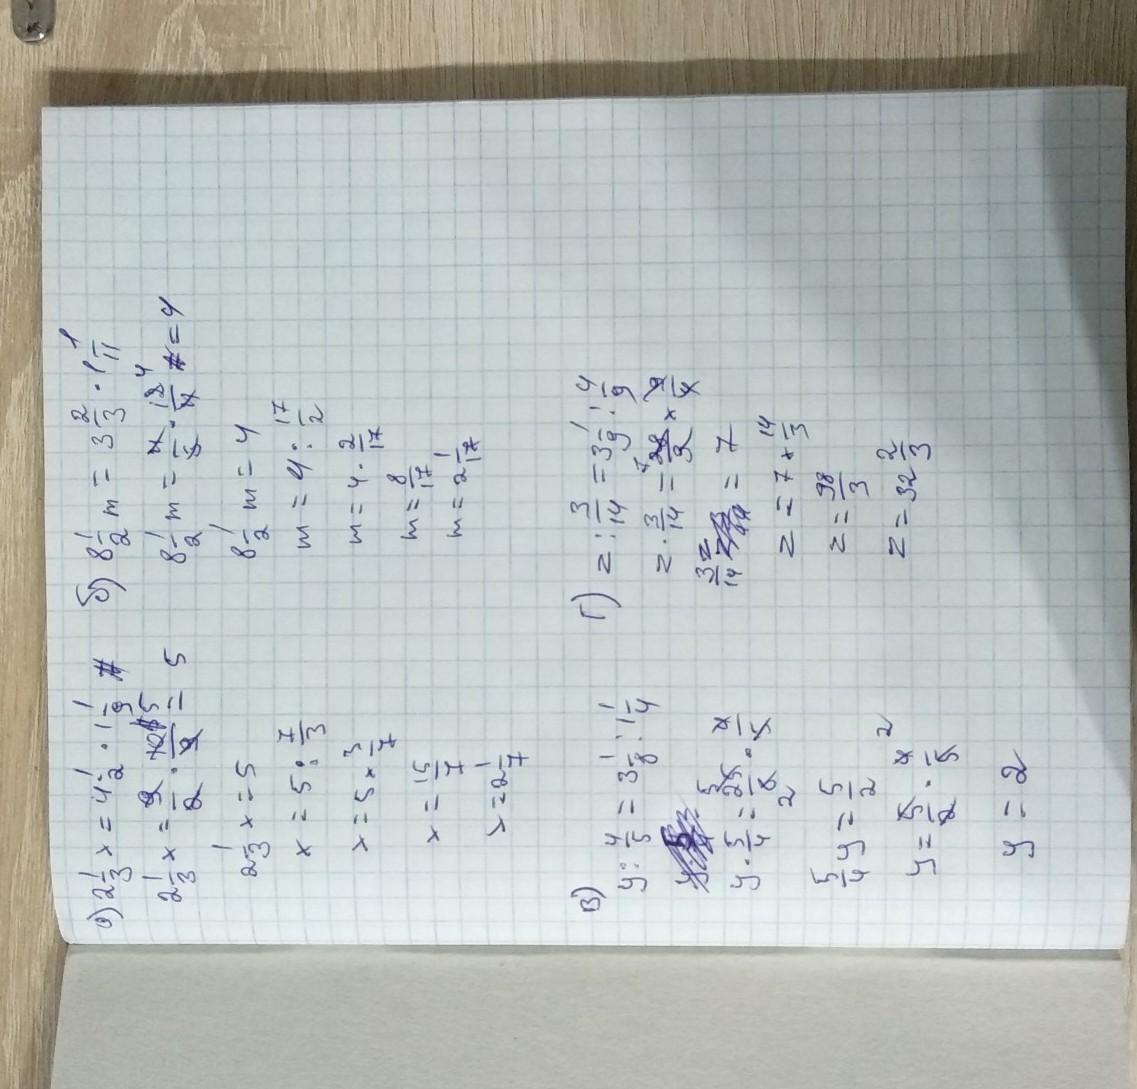 а) 2 1/3 x = 4 1/2 · 1 1/9
2 1/3 x = 9/2 · 10/9 = 5
2 1/3 x = 5
x = 5 : 7/3
x = 5 × 3/7
x = 15/7
x = 2 1/7
б) 8 1/2 m = 3 2/3 · 1 1/11
8 1/2 m = 11/3 · 12/11 = 4
8 1/2 m = 4
m = 4 : 17/2
m = 4 · 2/17
m = 8/17
m = 2 1/17
в)
y : 4/5 = 3 1/8 : 1 1/4
y · 5/4 = 25/8 · 4/5
5/4 y = 5/2
y = 5/2 · 4/5
y = 2
г) z : 3/14 = 3 1/9 : 4/9
z · 3/14 = 28/9 × 9/4
3/14 z = 7
z = 7 × 14/3
z = 98/3
z = 32 2/3